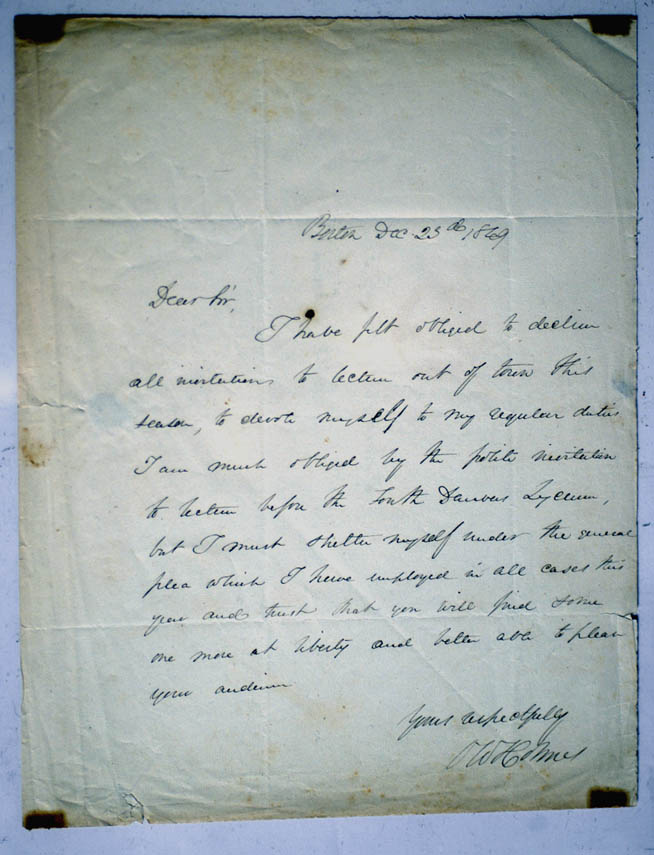 Boston Dec. 23d 1869
Dear Sir,
I have felt obliged to decline
all invitations to lecture out of town this
season, to devote myself to my regular duties
I am much obliged by the polite invitation
to lecture before the South Danvers Lyceum,
but I must shelter myself under the general
plea which I have employed in all cases this
year and trust that you will find some
one more at liberty and better able to please
your audience
Yours respectfully
O W Holmes